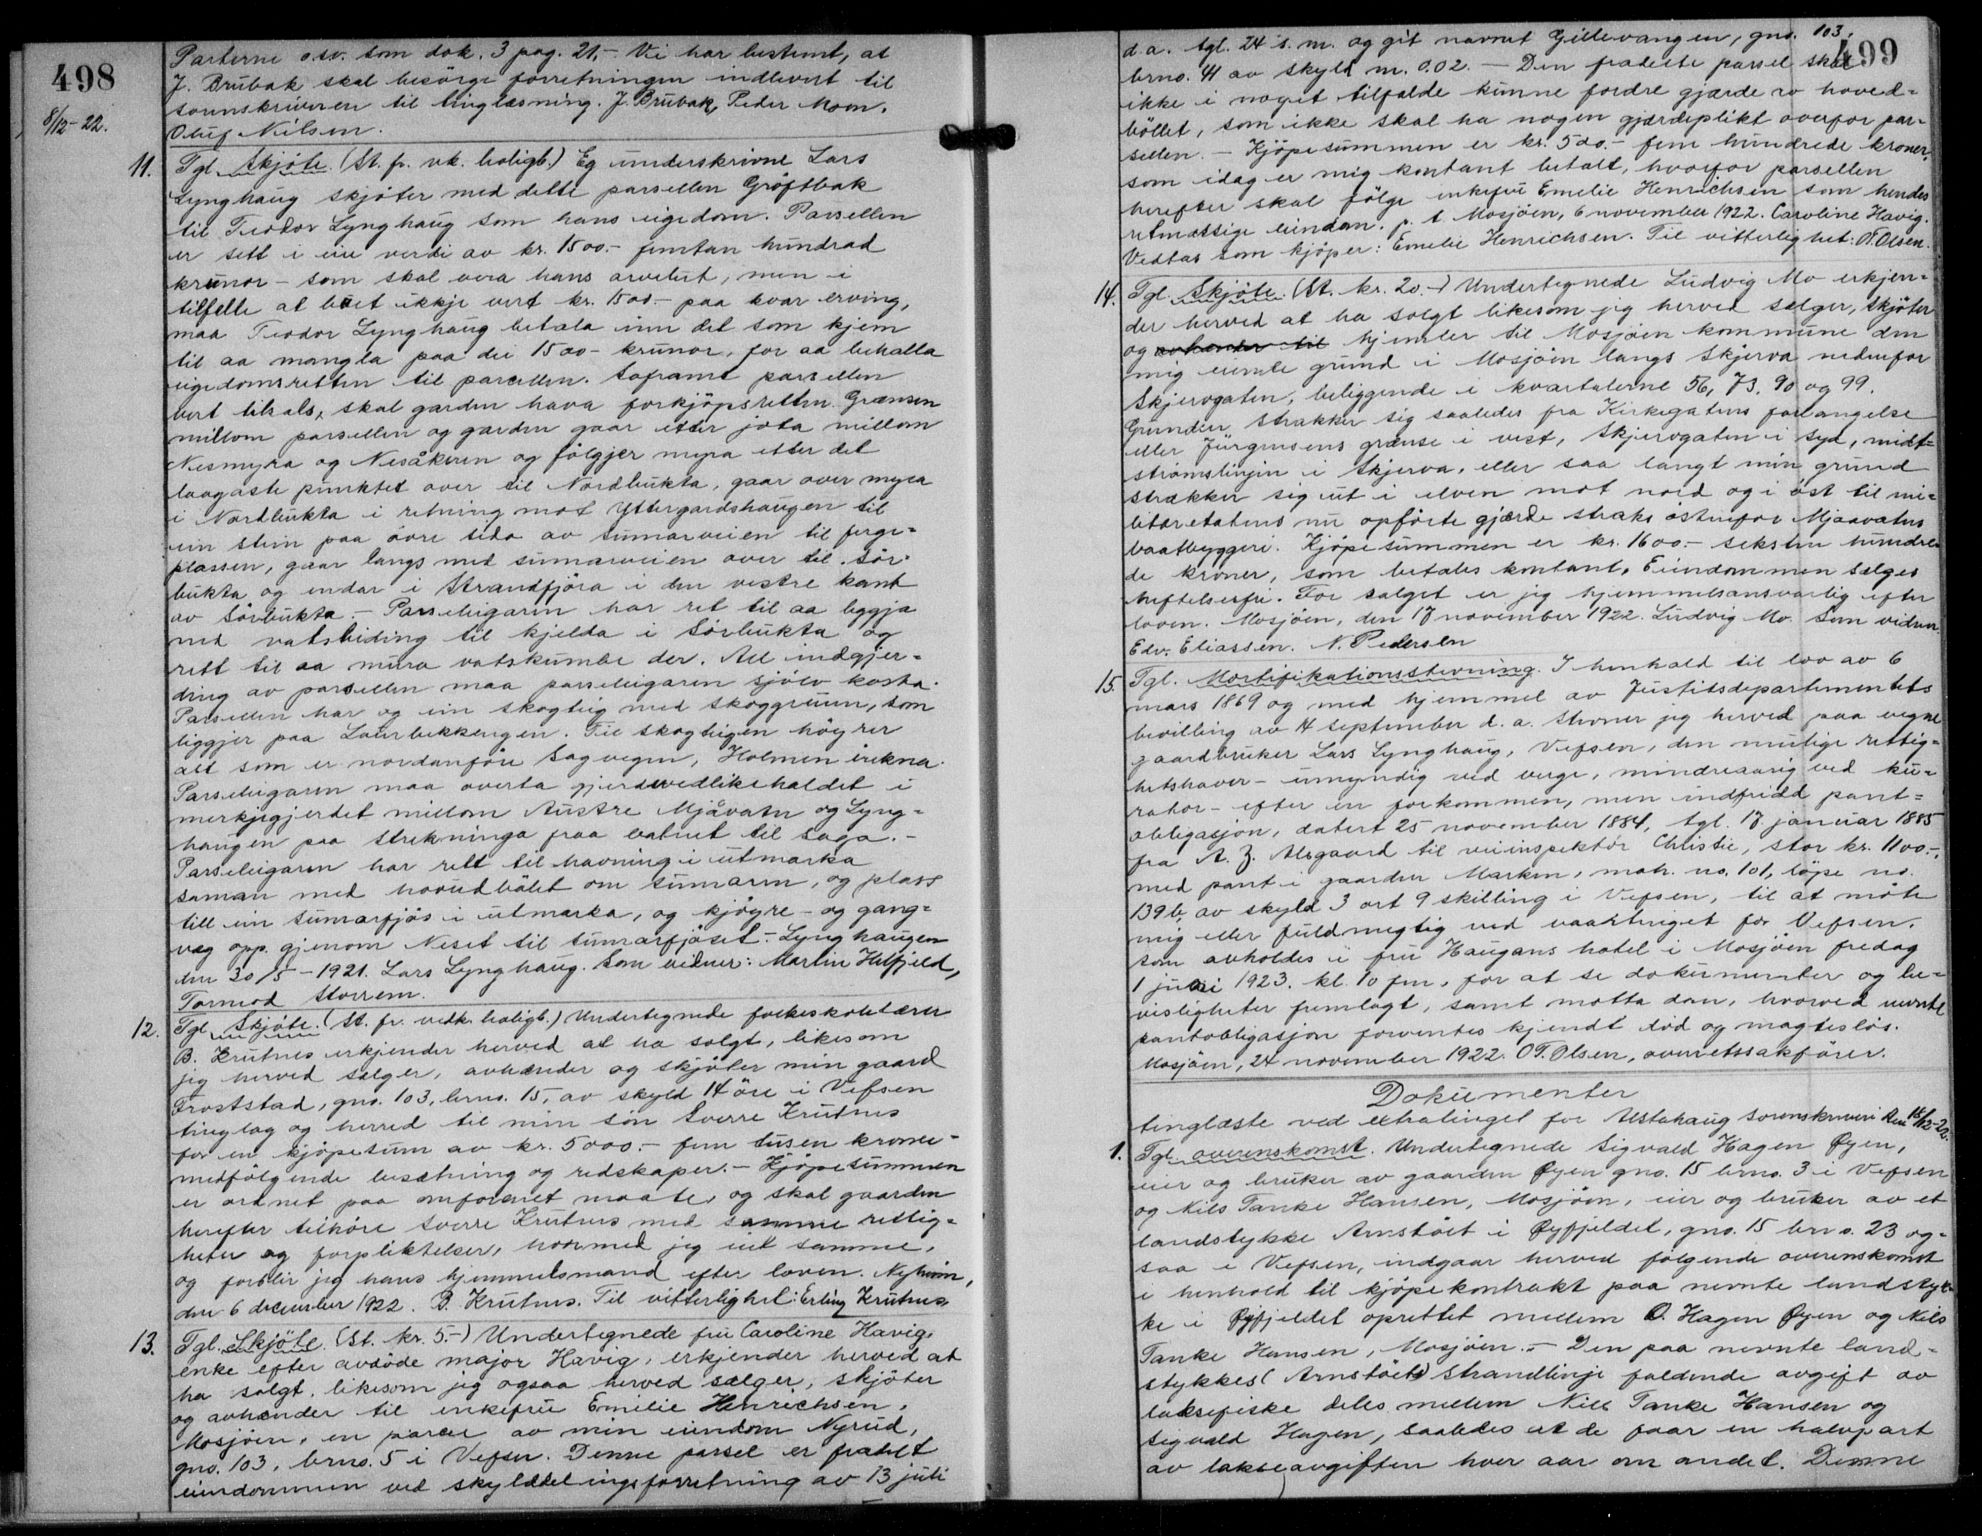 498
8/12-22.
Parterne o.sv. som dok. 3 pag. 21.- Vi har bestemt, at
J. Brubak skal besörge forretningen indlevert til
sorenskriveren til tinglæsning. J. Brubak, Peder Moen.
Oluf Nilsen.
11. Tgl. Skjöte. (St. fr. vk. boligb.) Eg underskrivne Lars
Lynghaug skjöter med dette parsellen Gröftbak
til Teodor Lynghaug som hans eigedom. Parsellen
er sett i ein verdi av kr. 1500.- femtan hundrad
krunor - som skal vera hans arvelut, men i
tilfelle at buet ikkje vert kr. 1500.- paa kvar erving,
maa Teodor Lynghaug betala inn det som kjem
til aa mangla paa dei 1500- krunor, for aa behalla
eigedomsretten til parcellen. Saframt parsellen
vert tilsals, skal garden hava forkjöpsretten. Grænsen
millom parsellen og garden gaar etter jota millom
Nesmyra og Nesåkeren og fölgjer myra etter det
laagaste punktet over til Nordbukta, gaar over myra
i Nordbukta i retning mot Yttergardshaugen til
ein stein paa övre sida av sumarveien til ferge-
plassen, gaar langs med sumarveien over til Sör-
bukta og endar i Strandfjöra i den vestre kant
av Sörbukta. - Parseleigaren har ret til aa leggja
ned vatsleiding til kjelda i Sörbukta og
rett til aa mura vatskumbe der. All indgjer-
ding av parsellen maa parseleigaren sjölv kosta.
Parsellen har og ein skogteig med skoggrunn, som
liggjer paa Laurbekkengen. Til skogteigen höyrer
alt som er nordanföre Sagvegen, Holmen irekna.
Parseleigaren maa overta gjerdevedlikehaldet i
merkjesgjerdet millom Austre Mjåvatn og Lyng-
haugen paa strekninga fraa vatnet til saga. -
Parseleigaren har rett til havning i utmarka
saman med hovudbölet om sumaren, og plass
till ein sumarfjös i utmarka, og kjöyre- og gang-
veg opp gjenom Neset til sumarfjöset. - Lynghaugen
den 30/5 - 1921. Lars Lynghaug. Som vidner: Martin Helfjeld,
Tormod Storrem.
12. Tgl. Skjöte. (St. fr. vedk. boligb.) Undertegnede folkeskolelærer
B. Krutnes erkjender herved at ha solgt, likesom
jeg herved sælger, avhænder og skjöter min gaard
Froststad, gno. 103, brno. 15, av skyld 14 öre i Vefsen
tinglag og herred til min sön Sverre Krutnes
for en kjöpesum av kr. 5000.- fem tusen kroner -
medfölgende besætning og redskaper. - Kjöpesummen
er ordnet paa omforenet maate, og skal gaarden
herefter tilhöre Sverre Krutnes med samme rettig-
heter og forpliktelser, hvormed jeg eiet samme,
og forblir jeg hans hjemmelsmand efter loven. Nyheim,
den 6 december 1922. B. Krutnes. Til vitterlighet: Erling Krutnes.
13. Tgl. Skjöte. (St. kr. 5.-) Undertegnede fru Caroline Havig,
enke efter avdöde major Havig, erkjender herved at
ha solgt, likesom jeg ogsaa herved sælger, skjöter
og avhænder til enkefru Emelie Henrichsen,
Mosjöen, en parcel av min eiendom Nyrud,
gno. 103, brno. 5 i Vefsen. Denne parsel er fradelt
eiendommen ved skylddelingsforretning av 13 juli
499
d.a. tgl. 24 s.m. og git navnet Gillevangen, gno. 103,
brno. 41 av skyld m. 0.02. - Den fradelte parsel skal
ikke i noget tilfælde kunne fordre gjærde av hoved-
böllet, som ikke skal ha nogen gjærdeplikt overfor par-
sellen. - Kjöpesummen er kr. 500.- fem hundrede kroner,
som idag er mig kontant betalt, hvorfor parsellen
herefter skal fölge enkefru Emelie Henrichsen som hendes
retmæssige eiendom. p.t. Mosjöen, 6 november 1922. Caroline Havig.
Vedtas som kjöper: Emelie Henrichsen. Til vitterlighet: O.T. Olsen.
14. Tgl. Skjöte. (St. kr. 20.-) Undertegnede Ludvig Mo erkjen-
der herved at ha solgt likesom jeg herved sælger, skjöter
og avhender til hjemler til Mosjöen kommune den
mig eiende grund i Mosjöen langs Skjerva nedenfor
Skjervgaten, beliggende i kvartalerne 56, 73, 90 og 99.
Grunden strækker sig saaledes fra Kirkegatens forlængelse
eller Jürgensens grænse i vest, Skjervgaten i syd, midt-
strömslinjen i Skjerva, eller saa langt min grund
strækker sig ut i elven mot nord og i öst til mi-
litæretatens nu opförte gjærde straks östenfor Mjaavatns
baatbyggeri. Kjöpesummen er kr. 1600.- seksten hundre-
de kroner, som betales kontant. Eiendommen sælges
heftelsesfri. For salget er jeg hjemmelsansvarlig efter
loven. Mosjöen, den 17 november 1922. Ludvig Mo. Som vidner:
Edv. Eliassen. N. Pedersen
15. Tgl. Mortifikationsstevning. I henhold til lov av 6
mars 1869 og med hjemmel av Justitsdepartementets
bevilling av 4 september d.a. stevner jeg herved paa vegne
gaardbruker Lars Lynghaug, Vefsen, den mulige rettig-
hetshaver - umyndig ved verge, mindreaarig ved ku-
rator - efter en forkommen, men indfridd pant-
obligasjon, datert 25 november 1884, tgl. 17 januar 1885
fra A. Z. Alsgaard til veiinspektör Christie, stor kr. 1100.-,
med pant i gaarden Marken, matr. no. 101, löpe no.
139b, av skyld 3 ort 9 skilling i Vefsen, til at möte
mig eller fuldmegtig ved vaartinget for Vefsen,
som avholdes i fru Haugans hotel i Mosjöen fredag
1 juni 1923. kl. 10 fm. for at se dokumenter og be-
visligheter fremlagt, samt motta dom, hvorved nevnte
pantobligasjon forventes kjendt död og magteslös.
Mosjöen, 24 november 1922. O.T. Olsen, overretssakförer.
Dokumenter
tinglæste ved extratinget for Alstahaug sorenskriveri den 15/12-22.
1. Tgl. overenskomst. Undertegnede Sigvald Hagen Øyen,
eier og bruker av gaarden Øyen gno. 15 brno. 3 i Vefsen
og Nils Tanke Hansen, Mosjöen, eier og bruker av et
landstykke Arnstöit i Øyfjeldet, gno. 15 brno. 23 og-
saa i Vefsen, indgaar herved fölgende overenskomst
i henhold til kjöpekontrakt paa nevnte landstyk-
ke i Øyfjeldet oprettet mellem O. Hagen Øyen og Nils
Tanke Hansen, Mosjöen. - Den paa nevnte land-
stykkes (Arnstöits) strandlinje faldende avgift av
laksefiske deles mellem Nils Tanke Hansen og
Sigvald Hagen, saaledes at de faar en halvpart
av lakseavgiften hver aar om andet. Denne